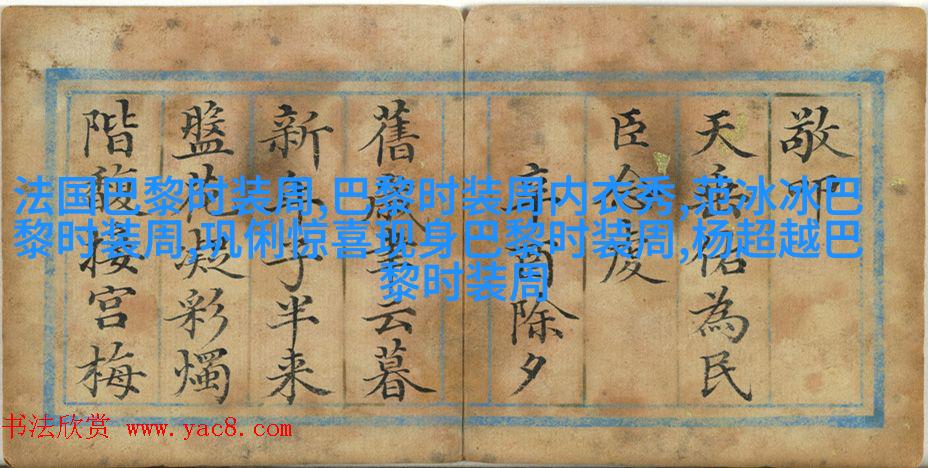 敬叩
天垂佑為民
臣念虔
除夕
舊歲云暮
新年子半来
盤花凝彩燭
階馥接宮梅
法国巴黎时装周,巴黎时装周内衣秀,范冰冰巴
黎时装周,巩俐惊喜现身巴黎时装周,杨超越巴
黎时装周
书法欣赏 www.yac8.com